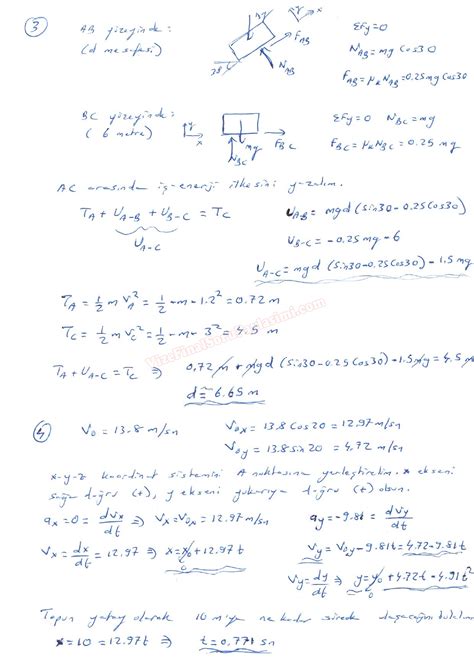 3
AB yüzeyinde:
(d mesafesi)
mg
F_AB
N_AB
30
x
ΣFy=0
N_AB = mg Cos30
F_AB = μ_k N_AB = 0.25 mg Cos30
BC yüzeyinde:
(6 metre)
y
x
mg
N_BC
F_BC
ΣFy=0
N_BC = mg
F_BC = μ_k N_BC = 0.25 mg
AC arasında iş-enerji ilkesini yazalım.
T_A + U_A-B + U_B-C = T_C
U_A-C
U_A-B = mgd (sin30 - 0.25Cos30)
U_B-C = -0.25 mg - 6
U_A-C = mgd (Sin30 - 0.25Cos30) - 1.5mg
T_A = 1/2 m V_A^2 = 1/2 - m - 1.2^2 = 0.72 m
T_C = 1/2 m V_C^2 = 1/2 - m - 3^2 = 4.5 m
T_A + U_A-C = T_C ⇒ 0,72m + mgd (Sin30 - 0.25Cos30) - 1.5mg = 4.5m
d ≅ 6.65 m
VizeFinalSoruDeryasimi.com
4
V_0 = 13.8 m/sn
V_0x = 13.8 Cos20 = 12.97 m/sn
V_0y = 13.8 sin20 = 4,72 m/sn
x-y-z koordinat sistemini A noktasına yerleştirelim. x ekseni
sağa doğru (+), y ekseni yukarıya doğru (+) olsun.
a_x = 0 = dVx/dt ⇒ Vx = V_0x = 12.97 m/sn
a_y = -9.81 = dVy/dt
Vx = dx/dt = 12.97 ⇒ x = x_0 + 12.97t
0
Vy = V_0y - 9.81t = 4.72 - 9.81t
Vy = dy/dt ⇒ y = y_0 + 4.72t - 4.91t^2
0
Topun yatay olarak 10 m'yi ne kadar sürede aşacağını bulalım
x = 10 = 12.97t ⇒ t = 0,771 sn